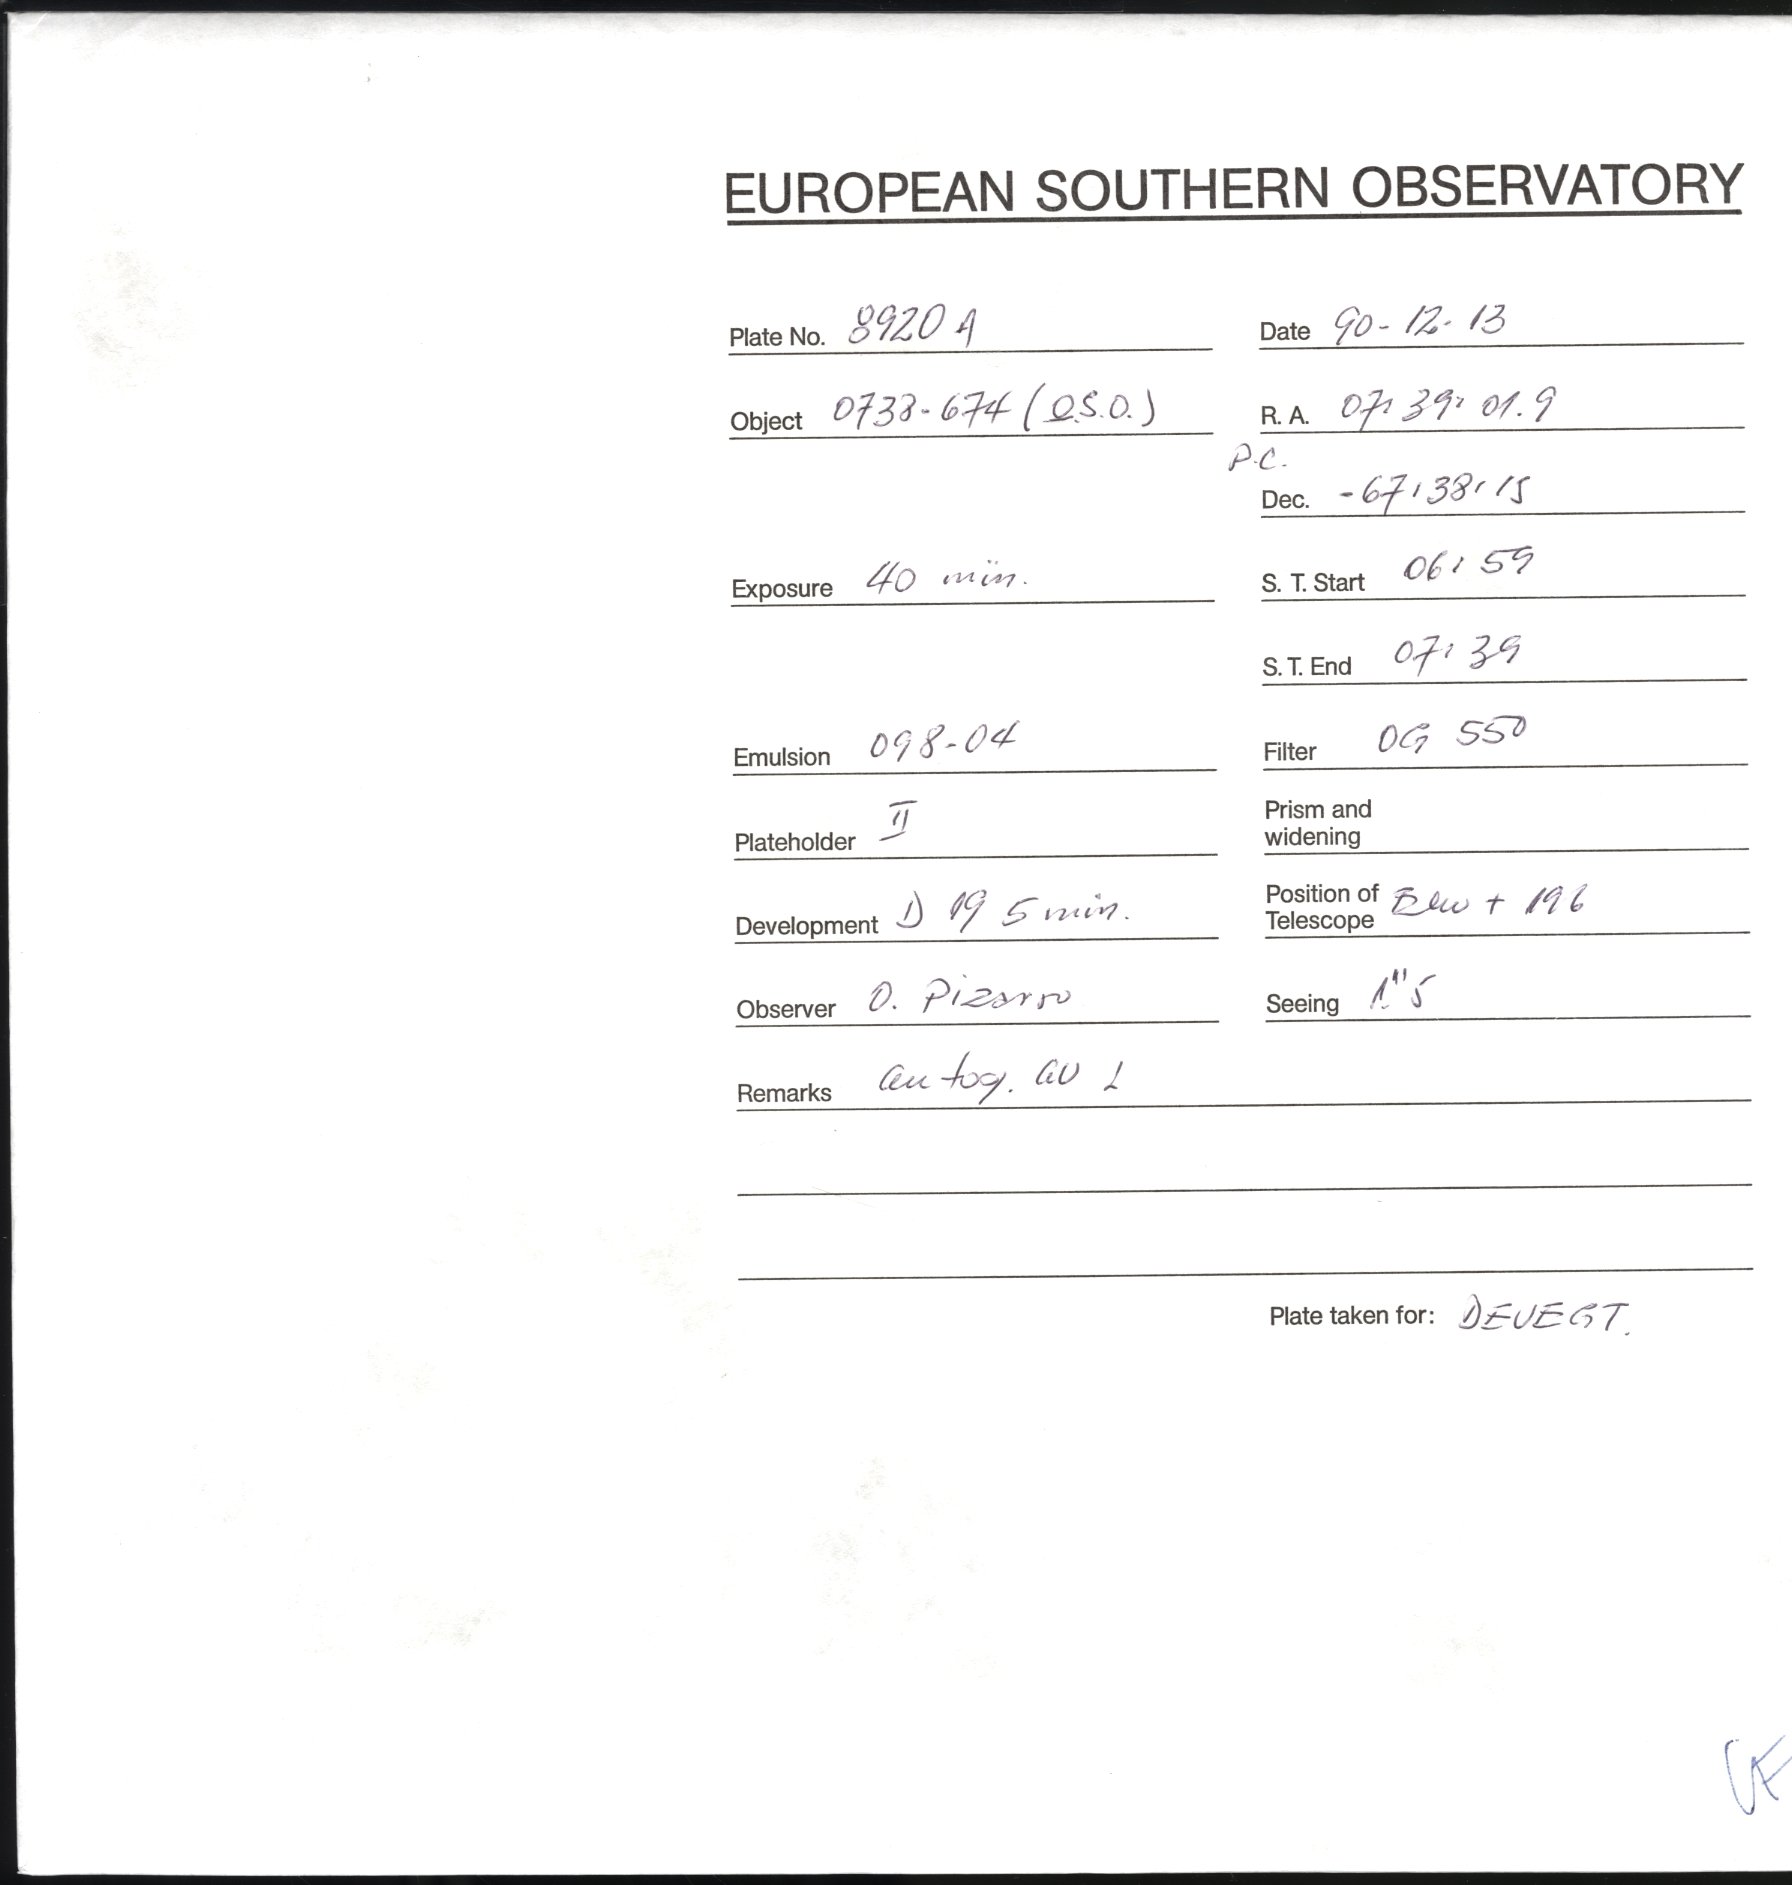 EUROPEAN SOUTHERN OBSERVATORY
Plate No. 8920 A
Date 90-12-13
Object 0738-674 (Q.S.O.)
R. A. 07:39:01.9
P.C.
Dec. -67:38:15
Exposure 40 min.
S. T. Start 06:59
S. T. End 07:39
Emulsion 098-04
Filter OG 550
Plateholder II
Prism and
widening
Development D 19 5 min.
Position of
Telescope + 196
Observer O. Pizarro
Seeing 1"5
Remarks autog.
Plate taken for: DEVEGT.